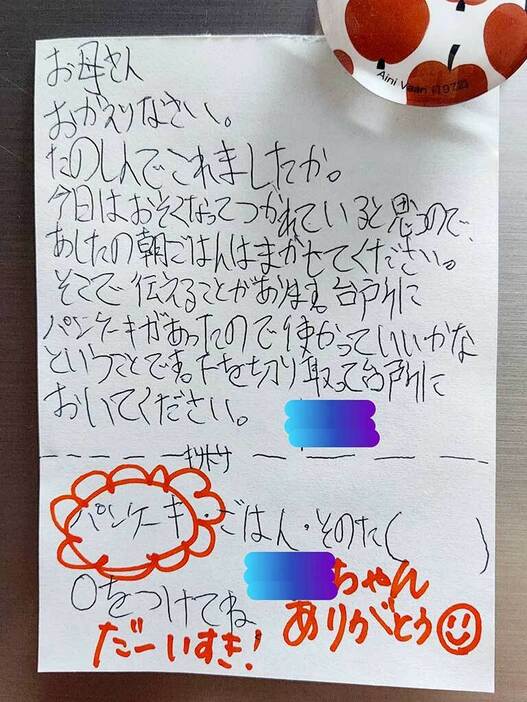 Aini Vaari
お母さん
おかえりなさい。
たのしんでこれましたか。
今日はおそくなってつかれていると思うので、
あしたの朝ごはんはまかせてください。
そこで伝えることがあります。台所に
パンケーキがあったので使かっていいかな
ということです。下を切り取って台所に
おいてください。
キリトリ
パンケーキ・ごはん・そのた(　　)
○をつけてね。
ちゃん
ありがとう
だーいすき!